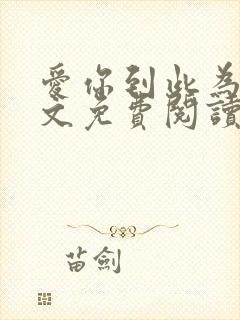 愛你到此為
文免費閱讀
苗劍